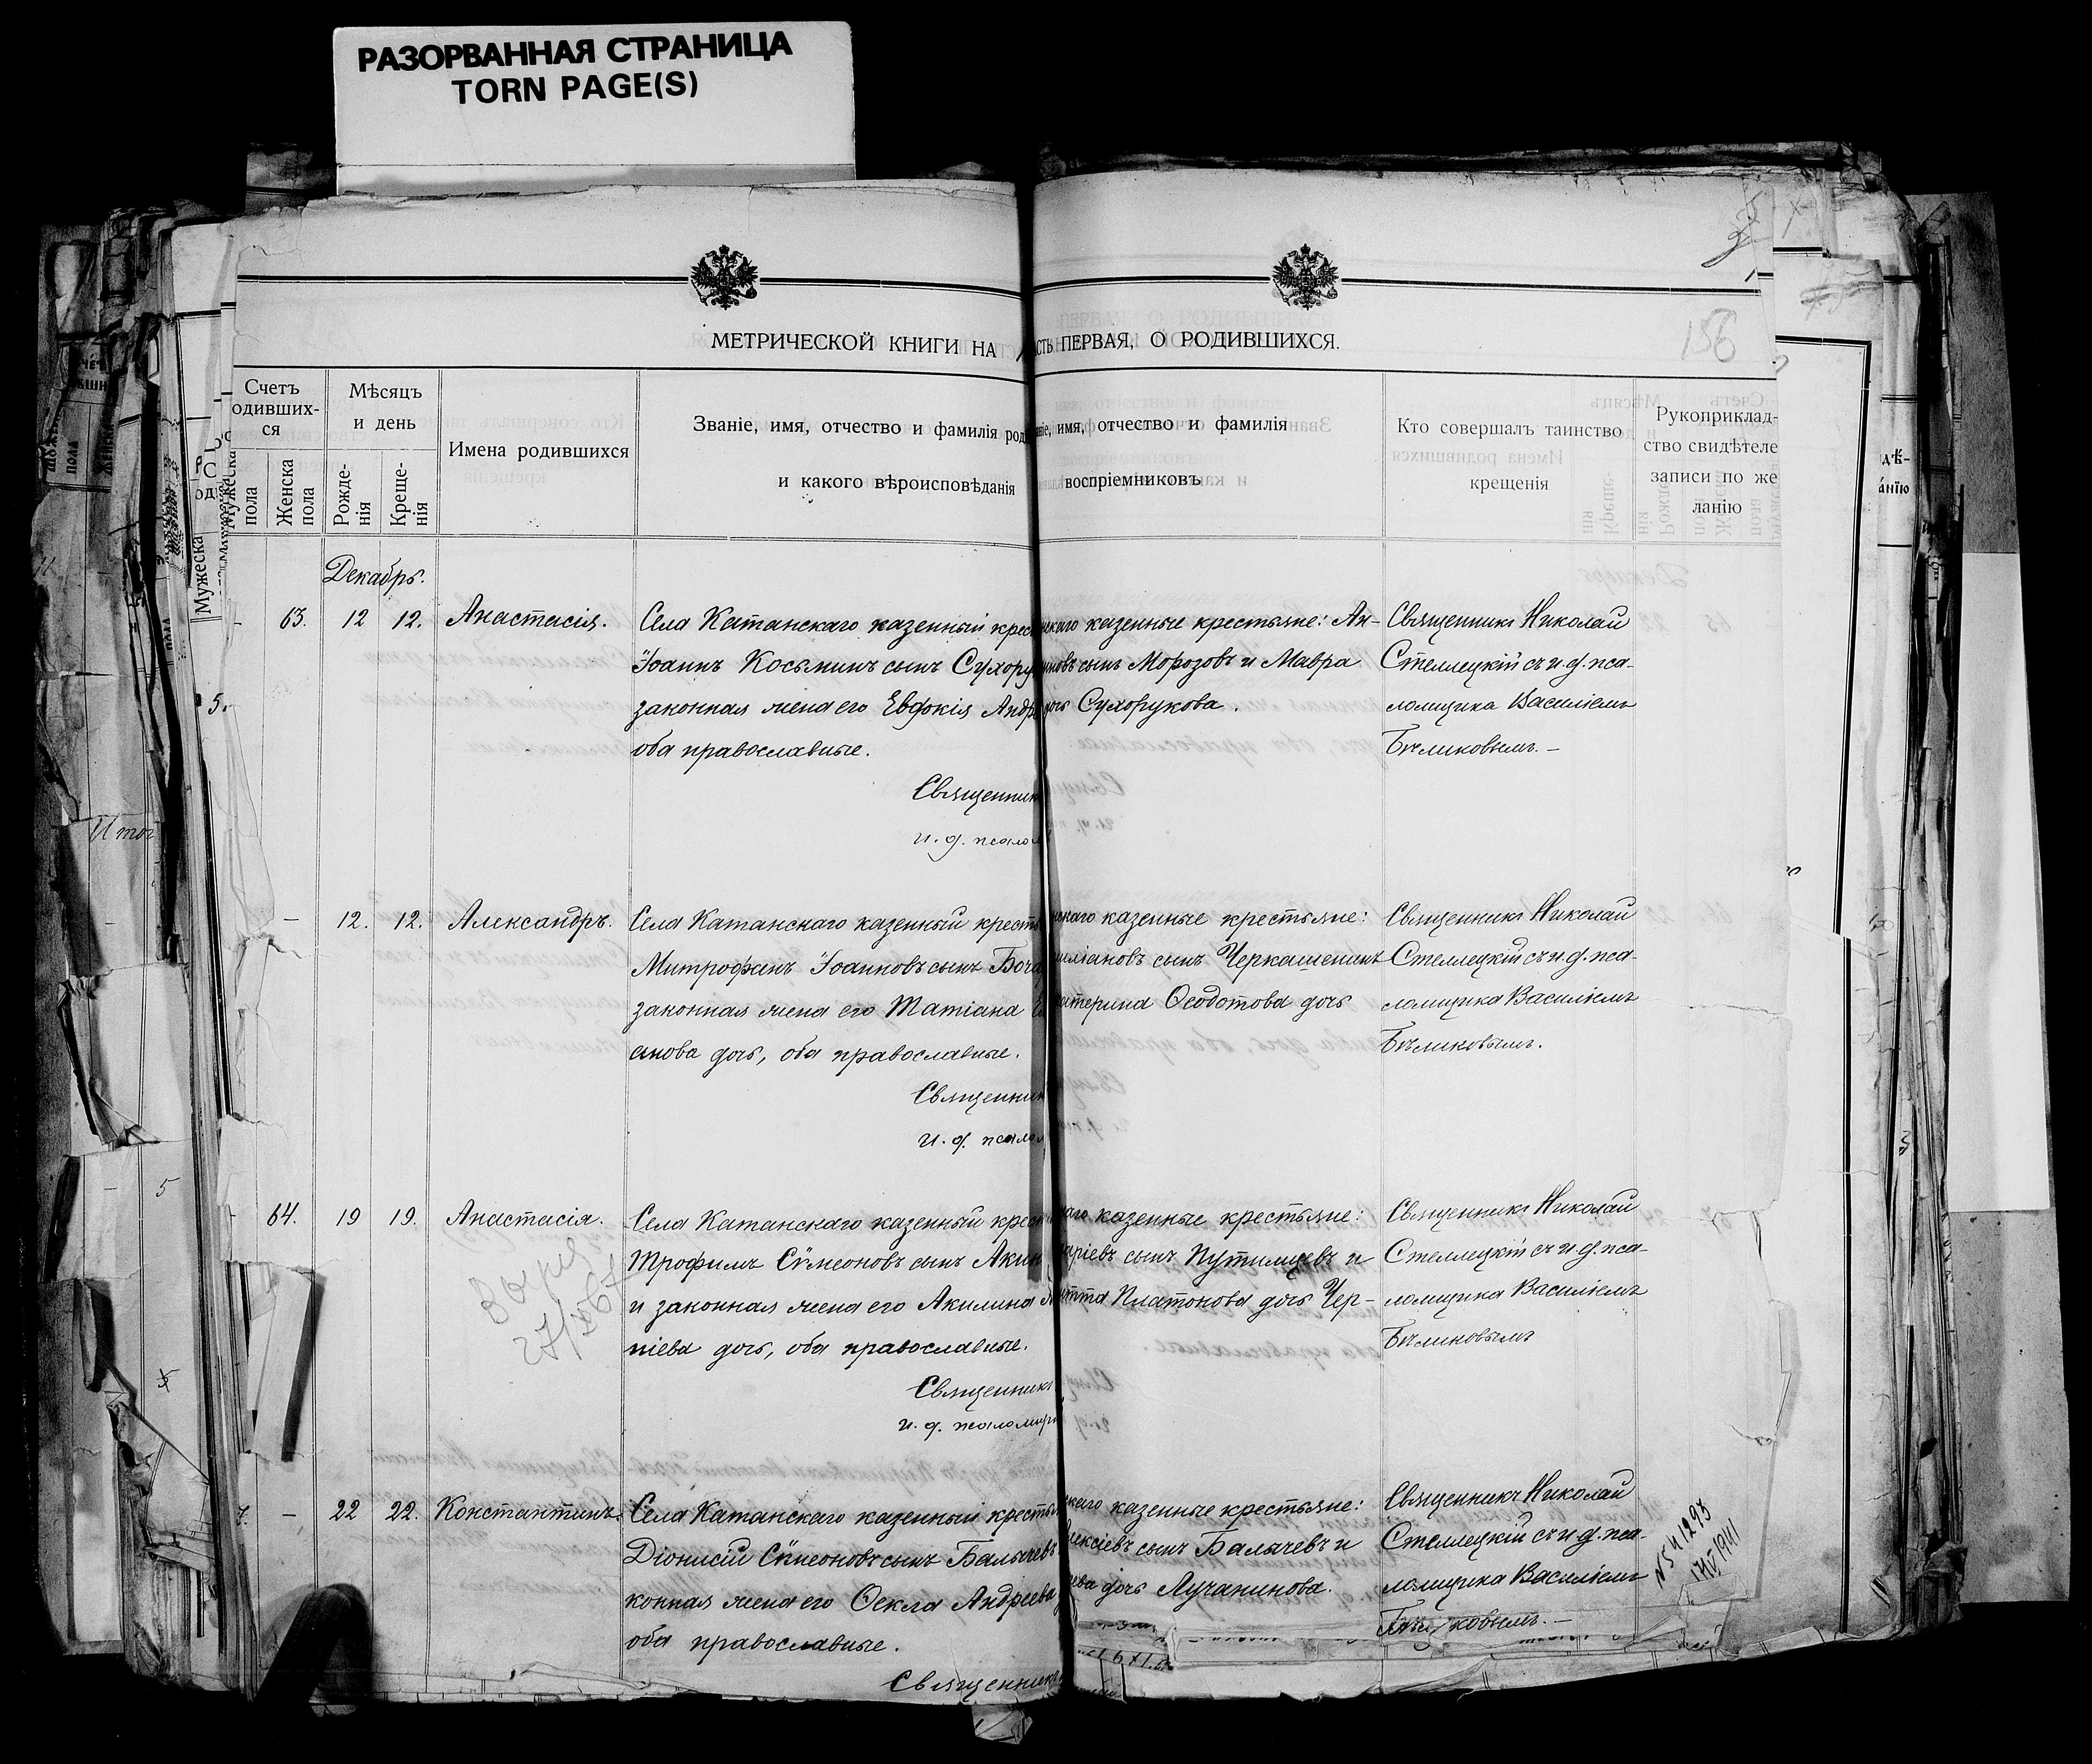 РАЗОРВАННАЯ СТРАНИЦА
TORN PAGE(S)
МЕТРИЧЕСКОЙ КНИГИ НА
СТЬ ПЕРВАЯ, О РОДИВШИХСЯ.
156
Счетъ
одивших-
ся
Мужеска
пола
Женска
пола
Мѣсяцъ
и день
Рожде-
нія
Креще-
нія
Имена родившихся
Званіе, имя, отчество и фамилія род
и какого вѣроисповѣданія
имя, отчество и фамилія
воспріемниковъ
Кто совершалъ таинство
крещенія
Рукоприклад-
ство свидѣтеле
записи по же
ланію
Декабрь.
- 63. 12 12. Анастасія.
Села Катанскаго казенный крес
Іоаннъ Косьминъ сынъ Сухору
законная жена его Евдокія Андр
оба православные.
Священник
и. д. псалом
скаго казенные крестьяне: Ан-
новъ сынъ Морозовъ и Мавра
дочь Сухорукова.
Священникъ Николай
Стеллецкій съ и. д. пса-
ломщика Василіемъ
Бѣликовымъ. –
– 12. 12. Александръ.
Села Катанскаго казенный кресть
Митрофанъ Іоанновъ сынъ Боча
законная жена его Татіана
анова дочь, оба православные.
Священник
и. д. псалом
скаго казенные крестьяне:
иліановъ сынъ Черкашенинъ
атерина Ѳеодотова дочь
Священникъ Николай
Стеллецкій съ и. д. пса-
ломщика Василіемъ
Бѣликовымъ.
- 64. 19 19. Анастасія.
Села Катанскаго казенный крес
Трофимъ Сѵмеоновъ сынъ Акин
и законная жена его Акилина
піева дочь, оба православные.
Священникъ
и. д. псаломщи
каго казенные крестьяне:
аріевъ сынъ Путимцевъ и
Платонова дочь Чер-
Священникъ Николай
Стеллецкій съ и. д. пса-
ломщика Василіемъ
Бѣликовымъ
7. – 22 22. Константинъ.
Села Катанскаго казенный кресть
Діонисій Сѵмеоновъ сынъ Балычевъ
конная жена его Ѳекла Андреева
оба православные.
Священникъ
скаго казенные крестьяне:
лексіевъ сынъ Балычевъ и
ева дочь Лучанинова.
Священникъ Николай
Стеллецкій съ и. д. пса-
ломщика Василіемъ
ковымъ. –
5.
Итог
5